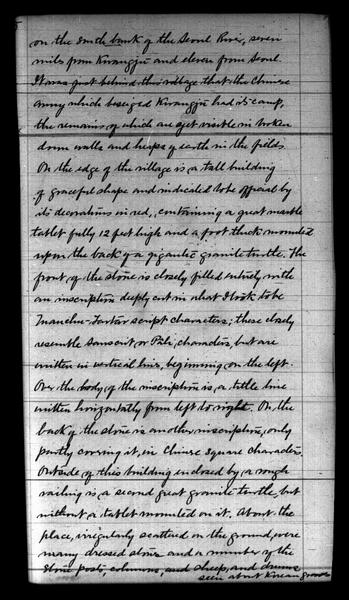 on the South bank of the Seoul River, seven
miles from Kwangju and eleven from Seoul.
It was just behind this village that the Chinese
army which beseiged Kwangju had its camp,
the remains of which are yet visible in broken
down walls and heaps of earth in the fields.
On the edge of the village is a tall building
of graceful shape and indicated to be official by
its decorations in red, containing a great marble
tablet fully 12 feet high and a foot thick mounted
upon the back of a gigantic granite turtle. The
front of the stone is closely filled entirely with
an inscription deeply cut in what I took to be
Manchu-Tartar script characters; these closely
resemble Sanscrit or Pali characters, but are
written in vertical lines, beginning on the left.
Over the body of the inscription is a title line
written horizontally from left to right. On the
back of the stone is another inscription, only
partly covering it, in Chinese square characters.
Outside of this building enclosed by a rough
railing is a second great granite turtle, but
without a tablet mounted on it. About the
place, irregularly scattered on the ground, were
many dressed stones and a number of the
stone posts, columns, and sheep, and
seen about Korean graves